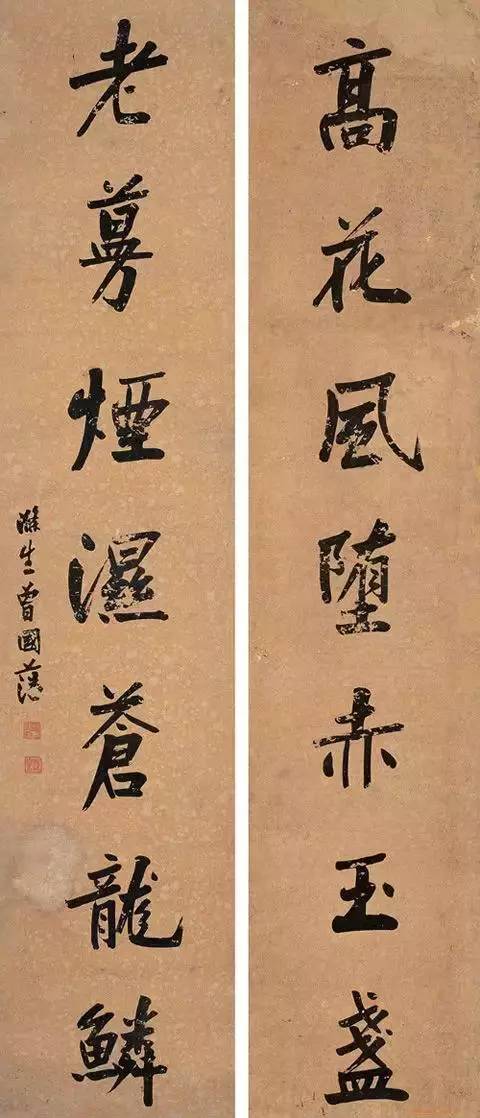 高花風墮赤玉盞
老蔓煙濕蒼龍鱗
滌生曾國藩